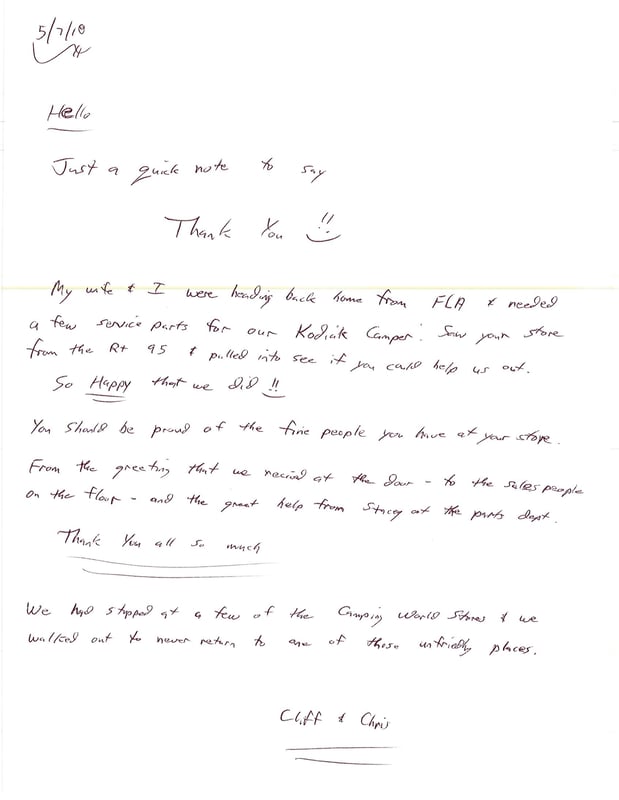 5/7/18
Hello
Just a quick note to say
Thank You !!
My wife & I were heading back home from FLA & needed
a few service parts for our Kodiak Camper. Saw your store
from the Rt 95 & pulled into see if you could help us out.
So Happy that we did !!
You should be proud of the fine people you have at your store.
From the greeting that we recived at the door - to the sales people
on the floor - and the great help from Stacey at the parts dept.
Thank You all so much
We had stopped at a few of the Camping World Stores & we
walked out to never return to one of those unfriendly places.
Cliff & Chris